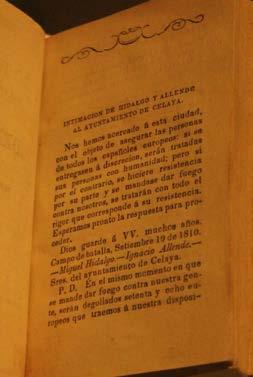 INTIMACION DE HIDALGO Y ALLENDE
AL AYUNTAMIENTO DE CELAYA.
Nos hemos acercado á esta ciudad,
con el objeto de asegurar las personas
de todos los españoles europeos: si se
entregasen á discrecion, serán tratadas
sus personas con humanidad; pero si
por el contrario, se hiciere resistencia
por su parte y se mandase dar fuego
contra nosotros, se tratarán con todo el
rigor que corresponde á su resistencia.
Esperamos pronto la respuesta para pro-
ceder.
Dios guarde á VV. muchos años.
Campo de batalla, Setiembre 19 de 1810.
—Miguel Hidalgo.—Ignacio Allende.—
Sres. del ayuntamiento de Celaya.
P. D. En el mismo momento en que
se mande dar fuego contra nuestra gen-
te, serán degollados setenta y ocho eu-
ropeos que traemos á nuestra disposi-